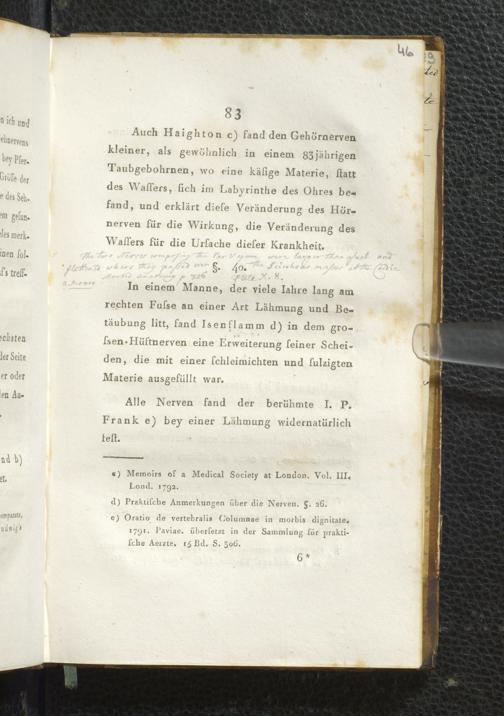 46
83
Auch Haighton c) fand den Gehörnerven
kleiner, als gewöhnlich in einem 83jährigen
Taubgebohrnen, wo eine käſige Materie, ſtatt
des Waſſers, ſich im Labyrinthe des Ohres be-
fand, und erklärt dieſe Veränderung des Hör-
nerven für die Wirkung, die Veränderung des
Waſſers für die Urſache dieſer Krankheit.
The two Nerves composing the Par Vagum were larger than usual and
flattened where they passed over
§. 40.
In einem Manne, der viele Iahre lang am
rechten Fuſse an einer Art Lähmung und Be-
täubung litt, fand Iſenflamm d) in dem gro-
ſsen-Hüftnerven eine Erweiterung ſeiner Schei-
den, die mit einer ſchleimichten und ſulzigten
Materie ausgefüllt war.
Alle Nerven fand der berühmte I. P.
Frank e) bey einer Lähmung widernatürlich
feſt.
c) Memoirs of a Medical Society at London. Vol. III.
Lond. 1792.
d) Praktiſche Anmerkungen über die Nerven. §. 26.
e) Oratio de vertebralis Columnae in morbis dignitate.
1791. Paviae. überſetzt in der Sammlung für prakti-
ſche Aerzte. 15 Bd. S. 306.
6*
n ich und
ehnervens
bey Pfer-
Gröſse der
e des Seh-
em geſun-
les merk-
inen ſol-
ſ's treff-
echsten
der Seite
er oder
len Au-
nd b)